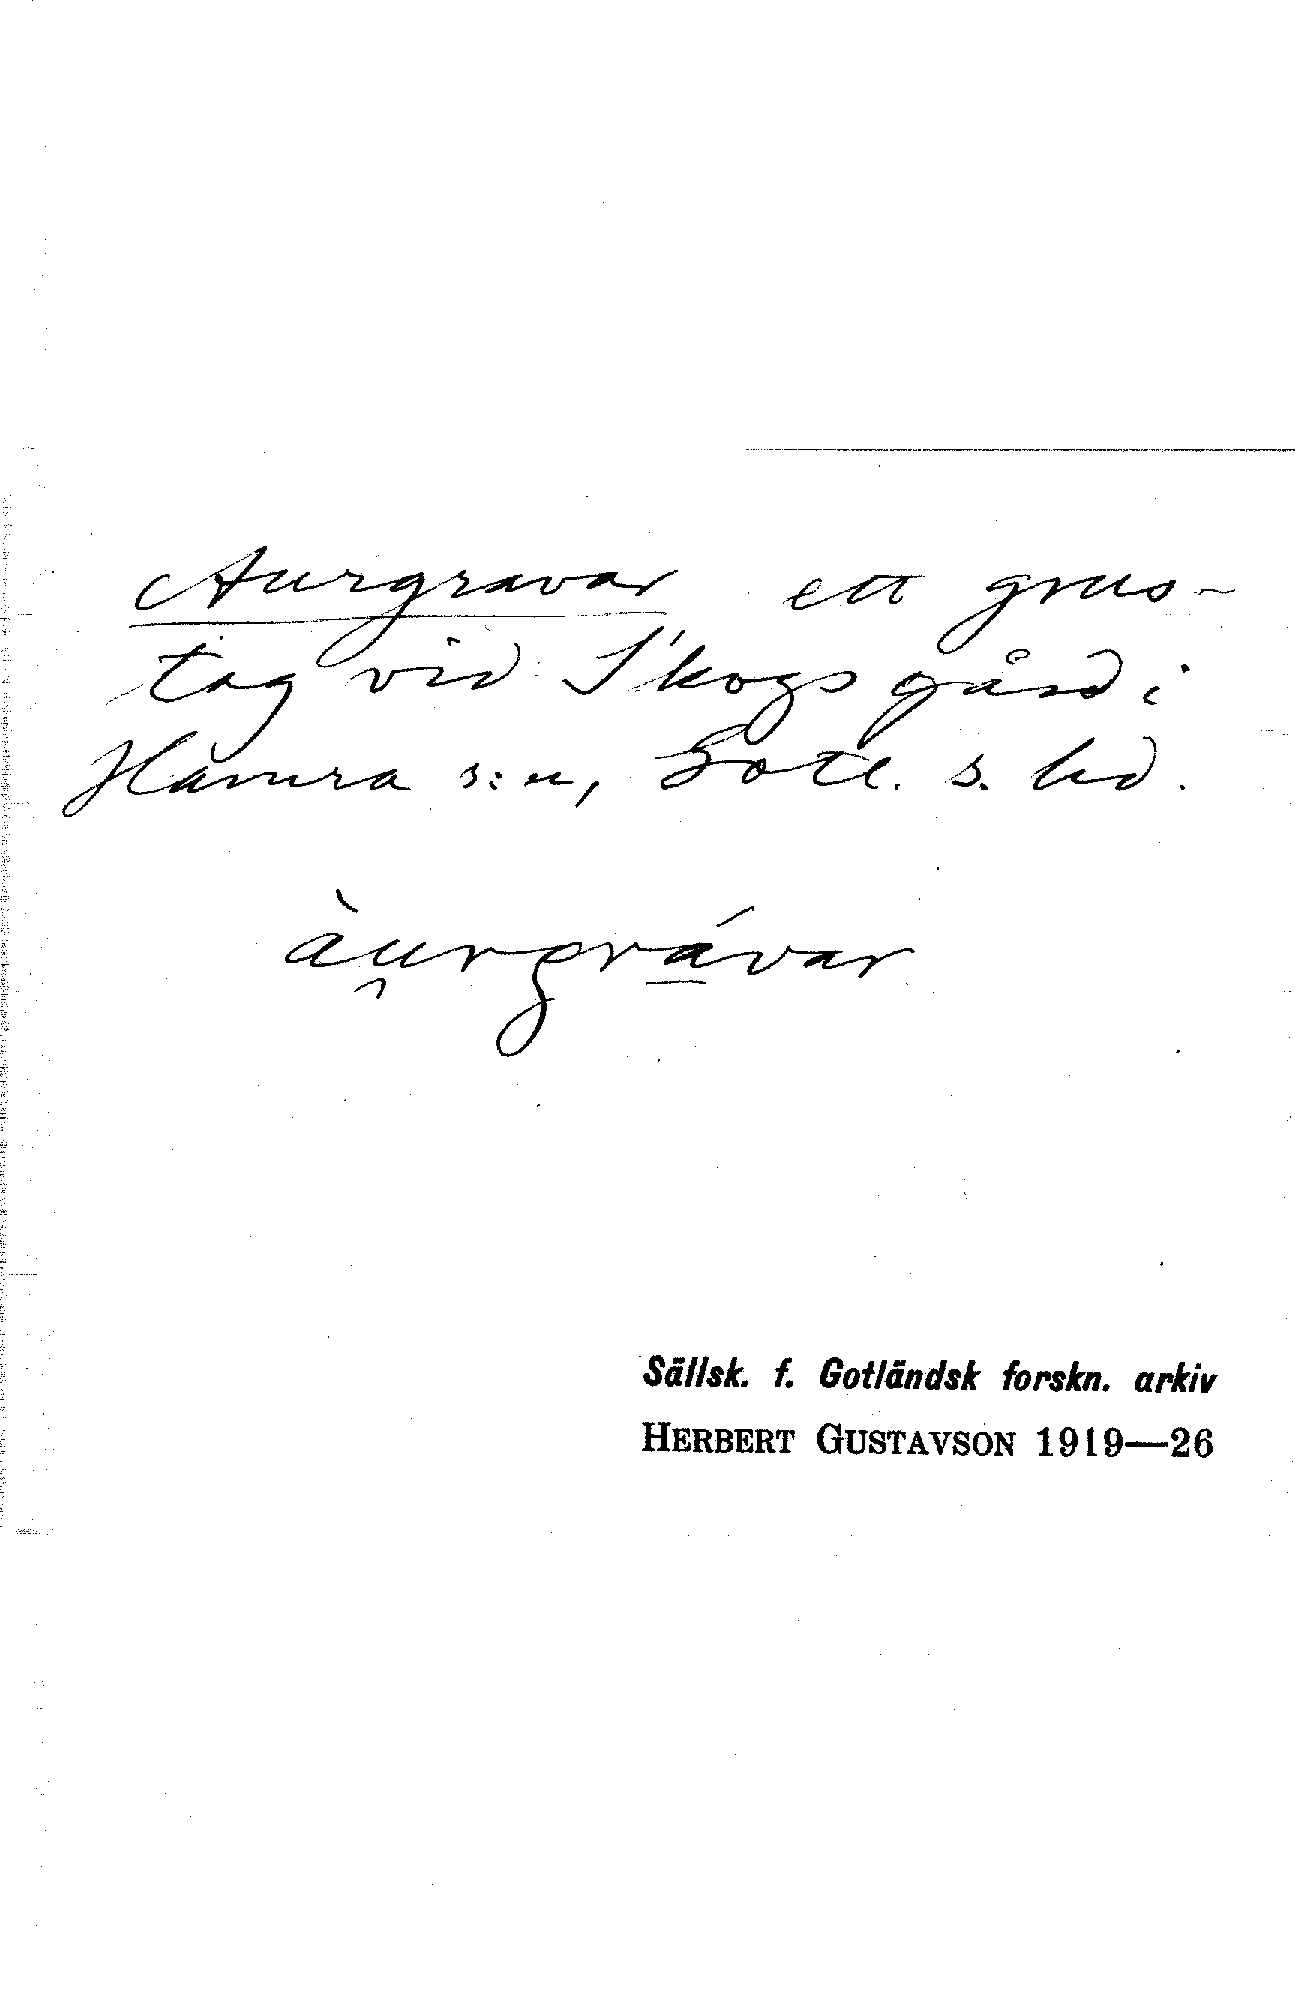 Aurgravar ett grus-
tag vid Skogsgård i
Hamra s:n, Gotl. s. hd.
àu̯rgrá̱var
Sällsk. f. Gotländsk forskn. arkiv
HERBERT GUSTAVSON 1919—26